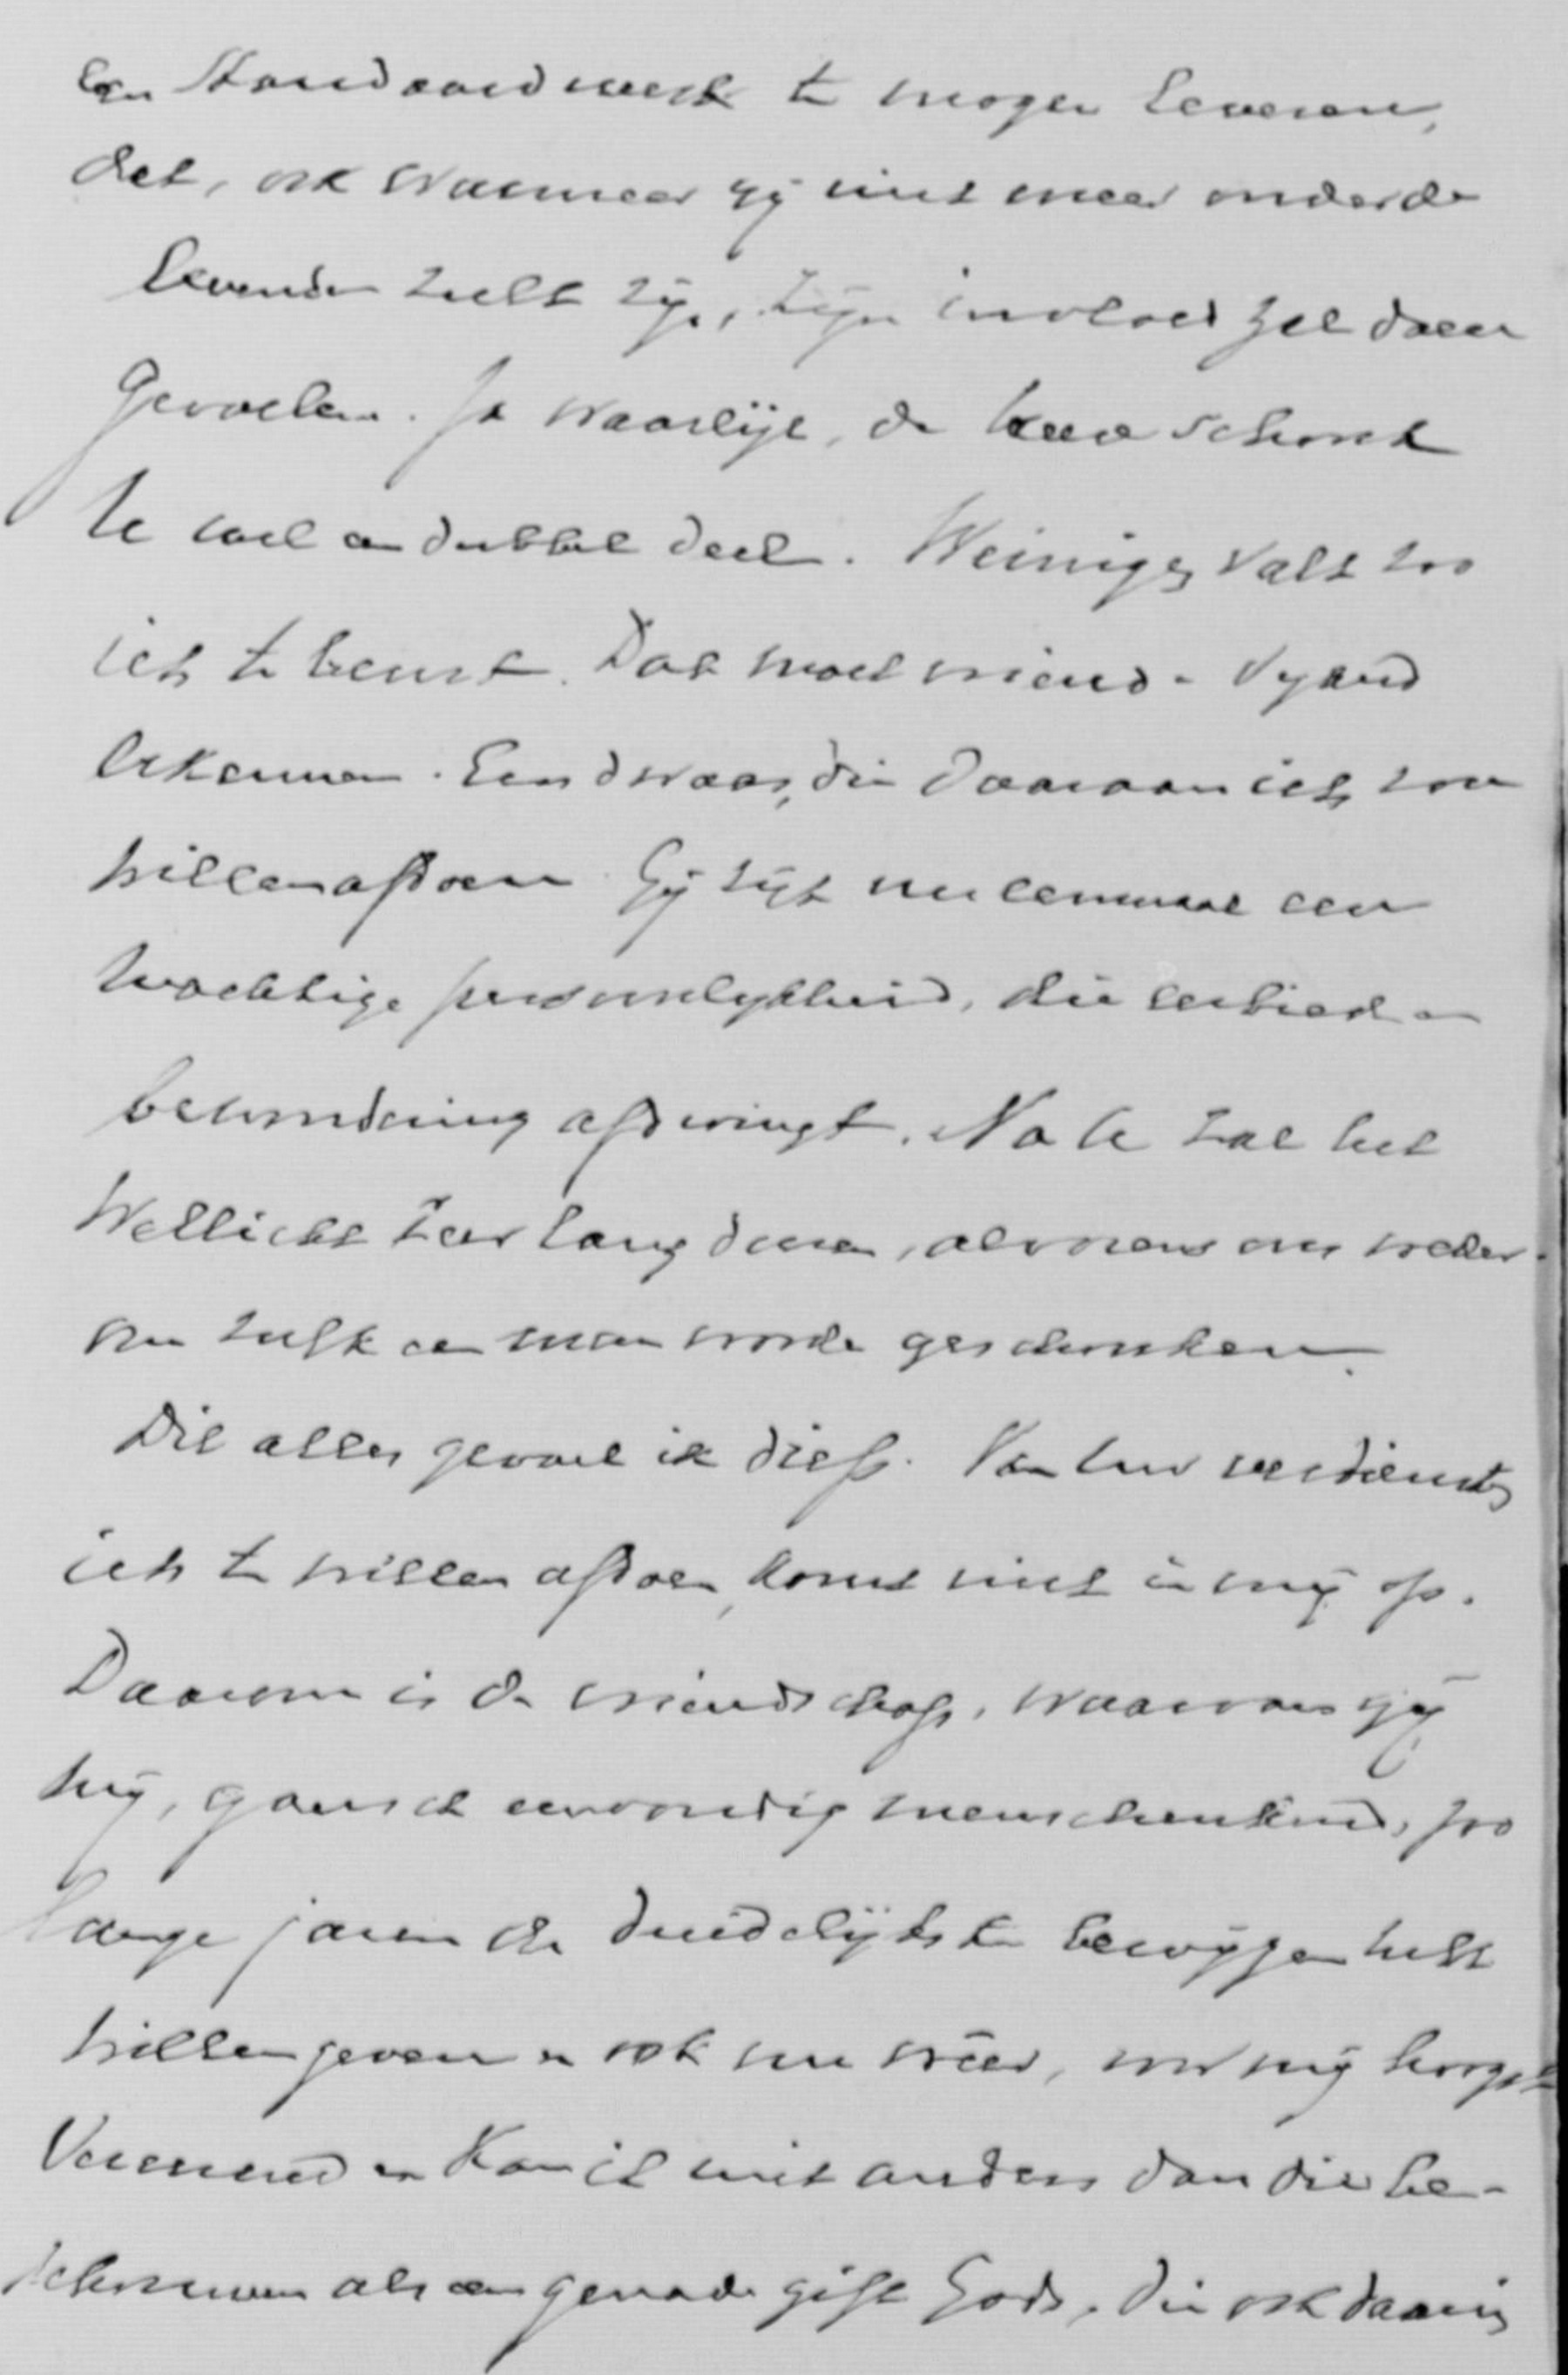 een Standaardwerk te mogen leveren,
dat, ook wanneer gij niet meer onder de
levenden zult zijn, zijn invloed zal doen
gevoelen. Ja waarlijk, de Heere schonk
U wel een dubbel deel. Weinigen valt zoo
iets te beurt. Dat moet vriend en vijand
erkennen. Een dwaas, die daaraan iets zou
willen afdoen. Gij zijt nu eenmaal een
machtige persoonlijkheid, die eerbied en
bewondering afdwingt. Na U zal het
wellicht zeer lang duren, alvorens ons weder-
om zulk een man worde geschonken.
Dit alles gevoel ik diep. Van Uw verdiensten
iets te willen afdoen, komt niet in mij op.
Daarom is de vriendschap, waarvan gij
mij, gansch eenvoudig menschenkind, zoo
lange jaren de duidelijkste bewijzen hebt
willen geven en ook nu weer, voor mij hoogst
vereerend en kan ik niet anders dan die be-
schouwen als een genade gift Gods, die ook daarin